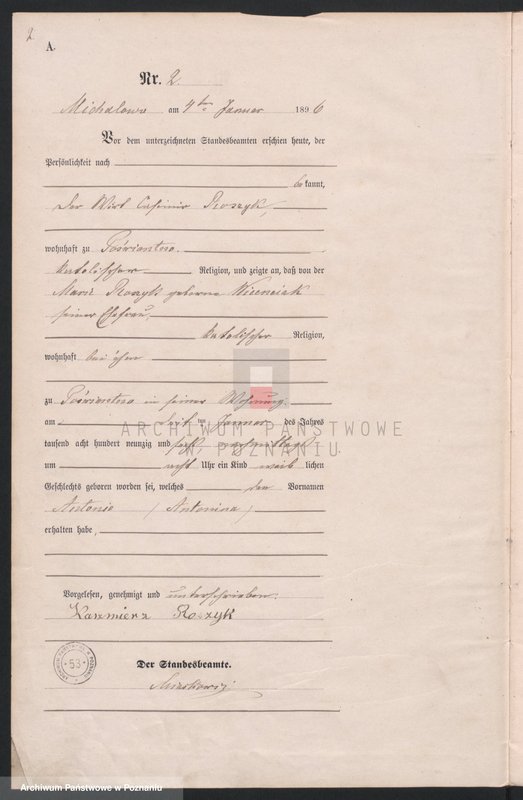 2
A.
Nr. 2.
Michalowo am 4ten Januar 1896
Vor dem unterzeichneten Standesbeamten erschien heute, der
Persönlichkeit nach
bekannt,
der Wirt Casimir Roszyk,
wohnhaft zu
katholischer Religion, und zeigte an, daß von der
Marie Roszyk geborene
seiner Ehefrau,
katholischer Religion,
wohnhaft bei ihm
zu in seiner Wohnung
am ten Januar des Jahres
tausend acht hundert neunzig und sechs nachmittags
um acht Uhr ein Kind weiblichen
Geschlechts geboren worden sei, welches den Vornamen
Antonie (Antonina)
erhalten habe,
Vorgelesen, genehmigt und unterschrieben.
Kazmierz Roszyk
Der Standesbeamte.
ARCHIWUM PAŃSTWOWE
W POZNANIU
ARCHIWUM PAŃSTWOWE W POZNANIU
53
Archiwum Państwowe w Poznaniu